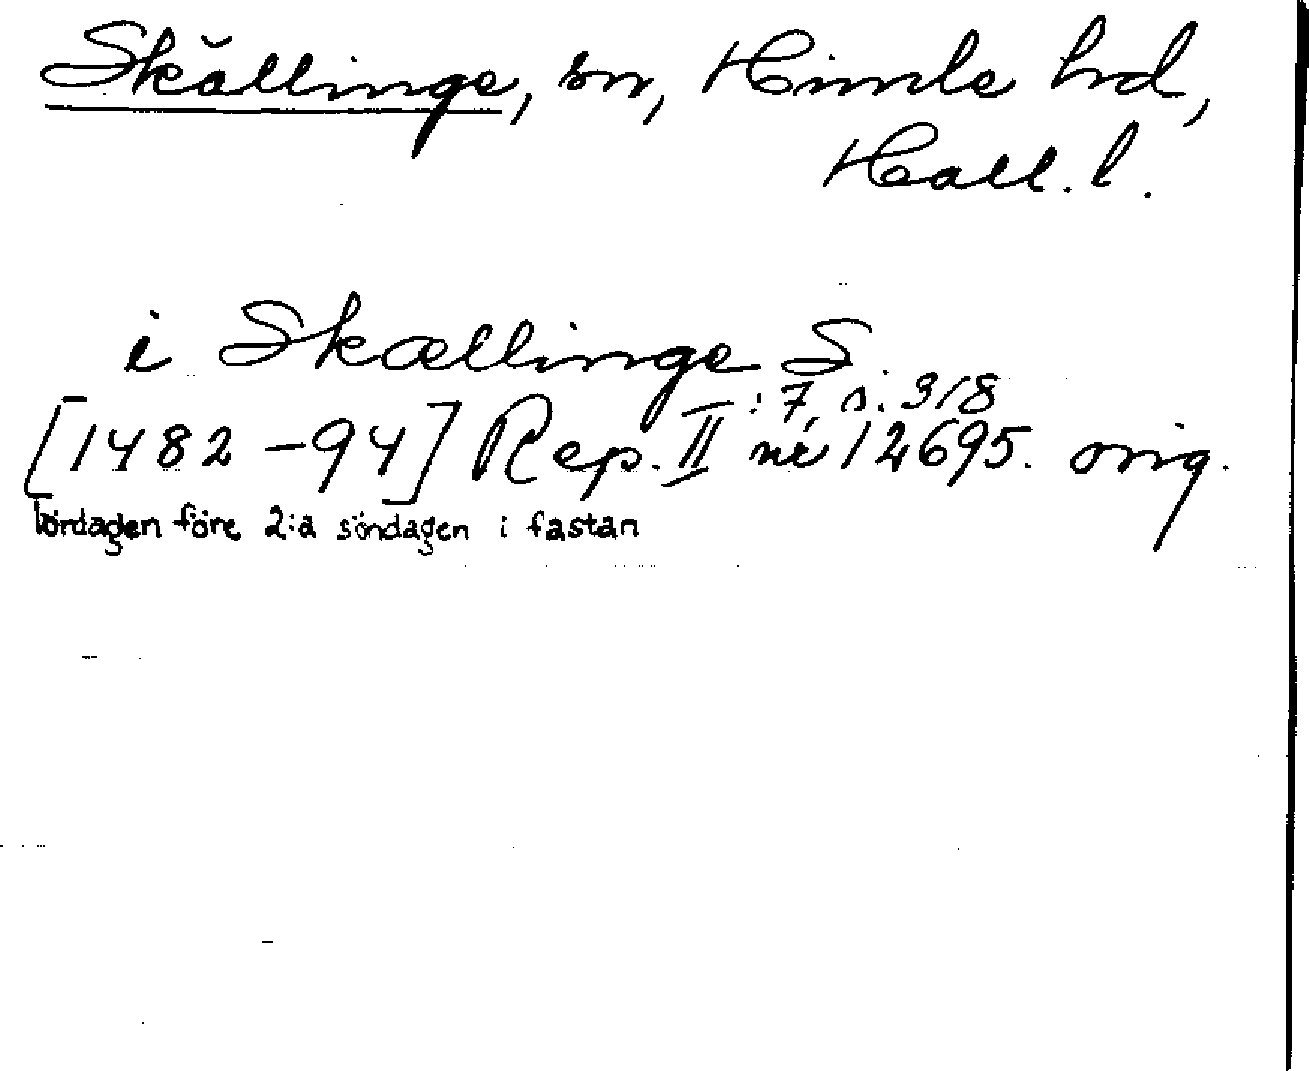 Skällinge, sn, Himle hrd,
Hall. l.
i Skællinge S
[1482-94] Rep. II :7, s. 318 nr 12695. orig.
lördagen före 2:a söndagen i fastan